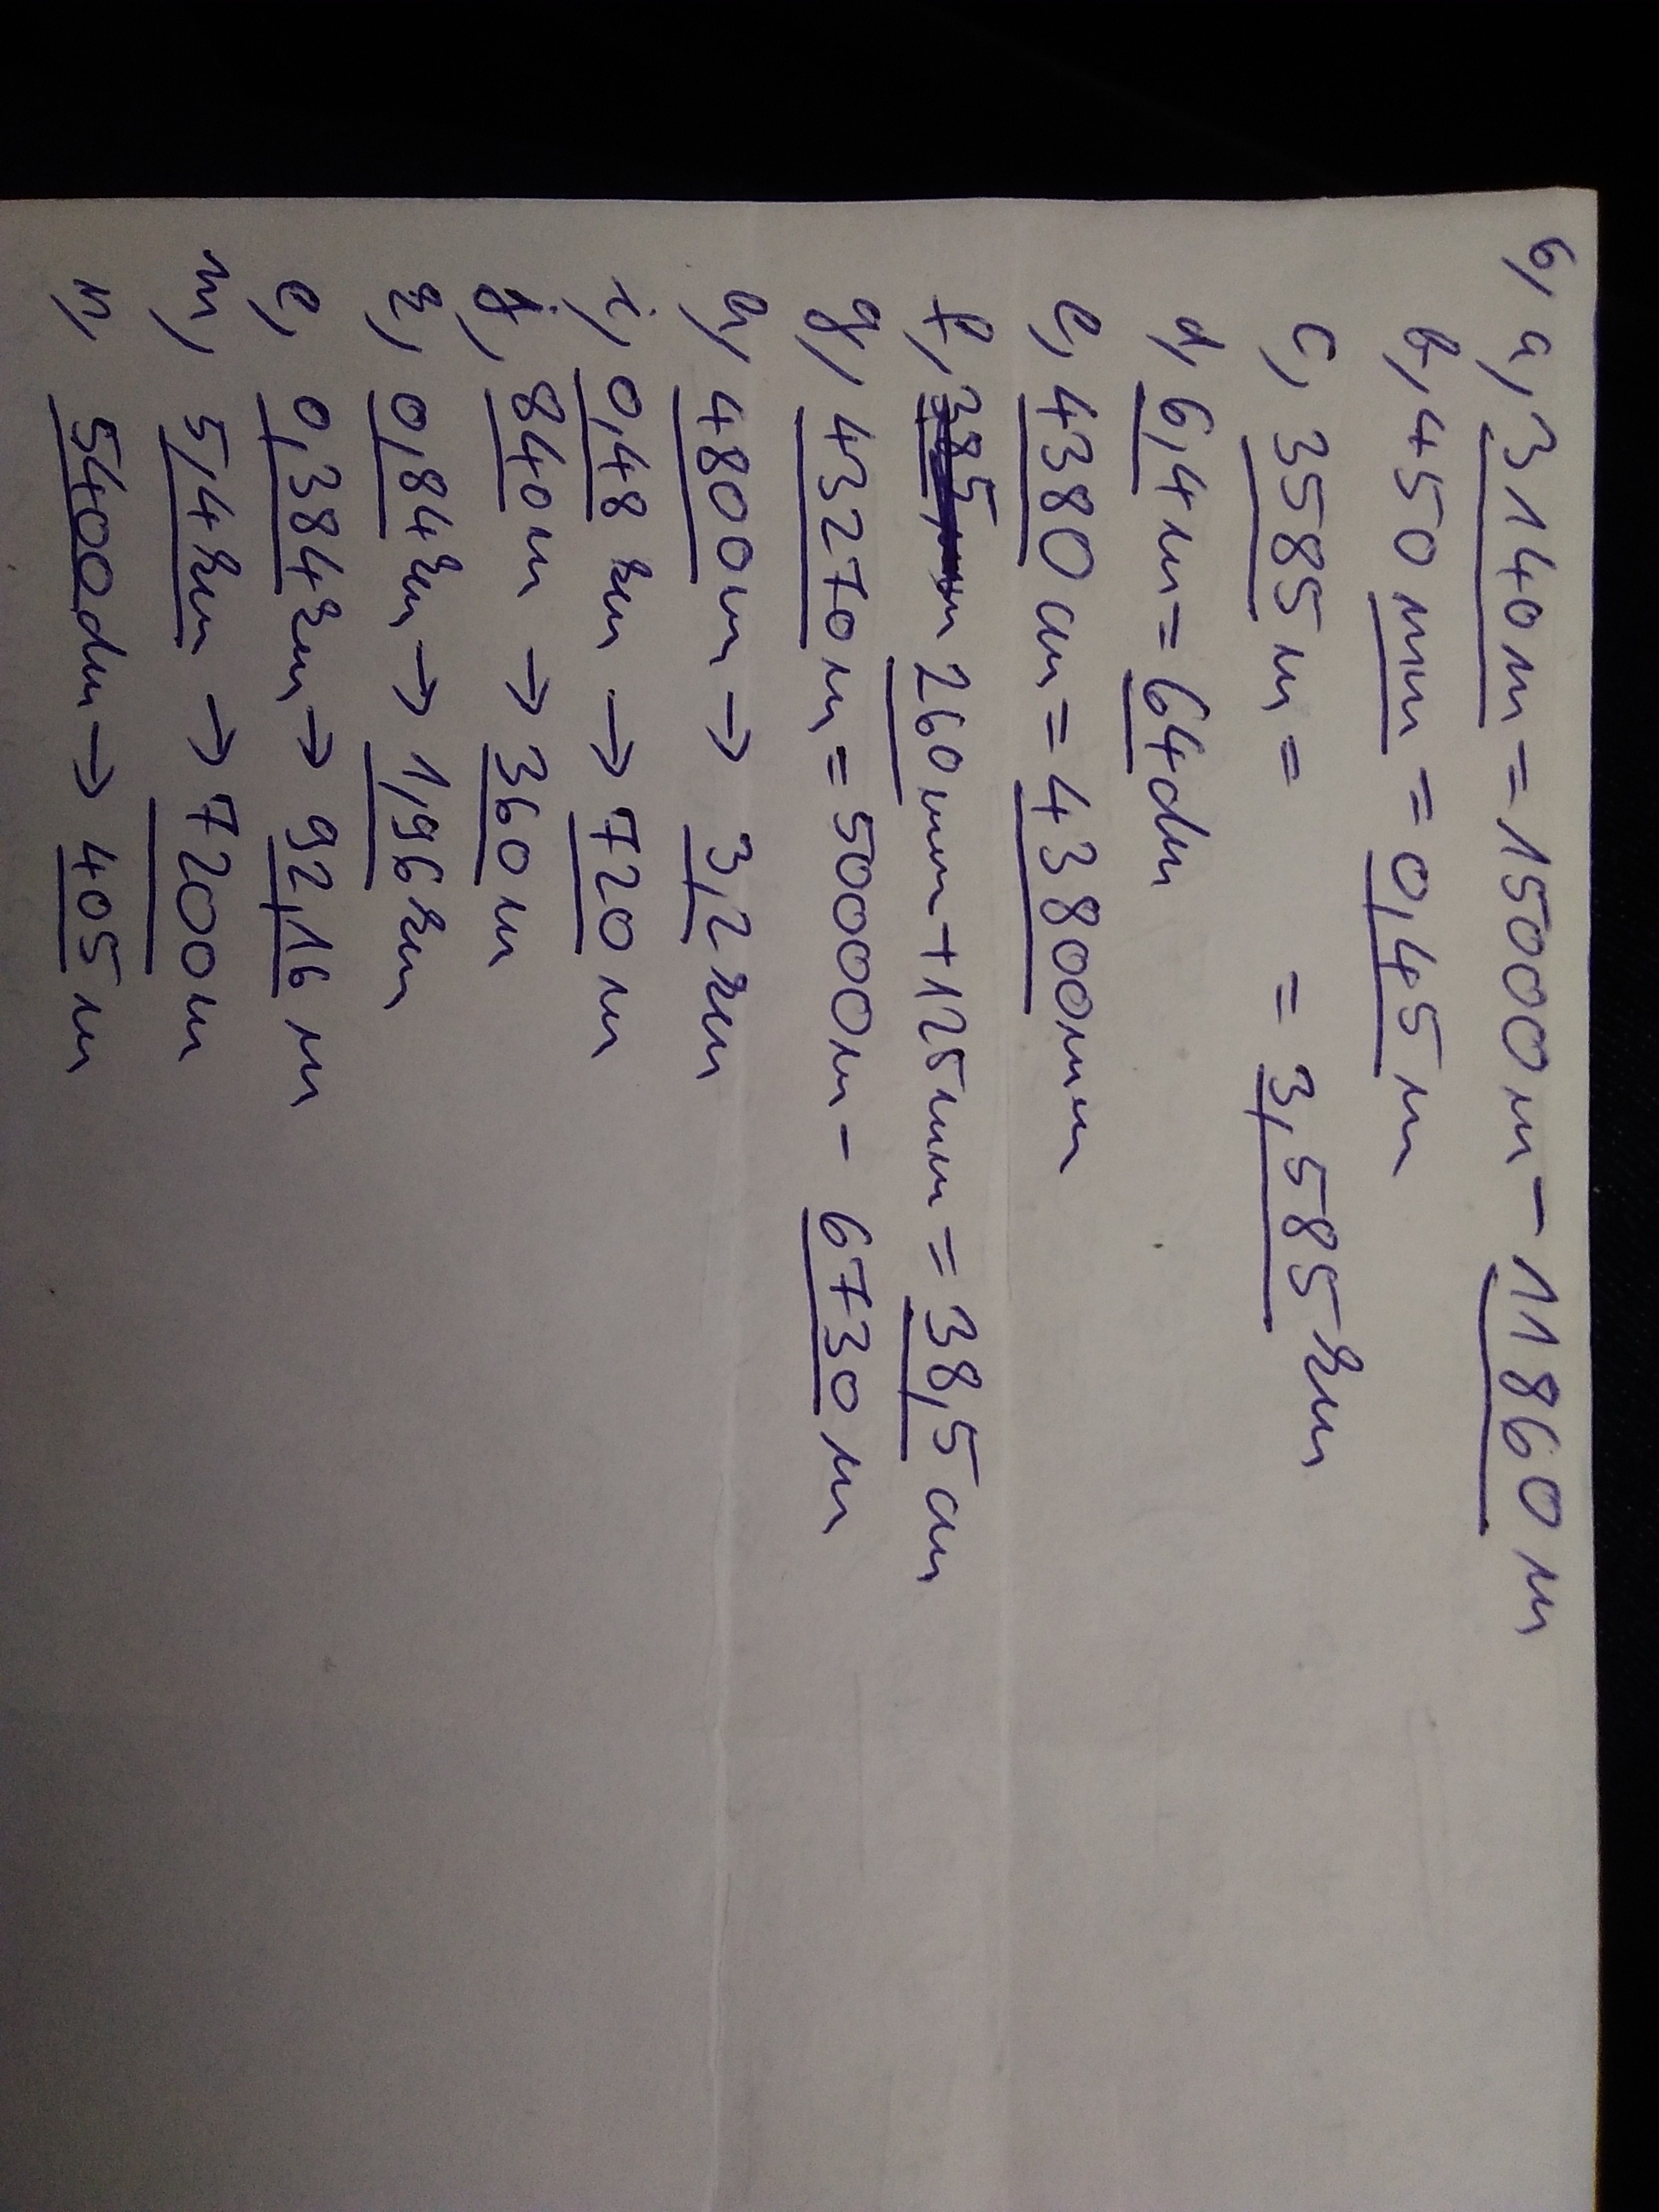 6, a, 3140m = 15000m - 11860m
b, 450 mm = 0,45 m
c, 3585 m = = 3,585 km
d, 6,4m = 64dm
e, 4380 cm = 43800mm
f, 260mm + 125mm = 38,5 cm
g, 43270m = 50000m - 6730m
h, 4800m → 3,2 km
i, 0,48 km → 720 m
j, 840m → 360 m
k, 0,84km → 1,96km
l, 0,384km → 92,16 m
m, 5,4km → 7200m
n, 5400dm → 405 m